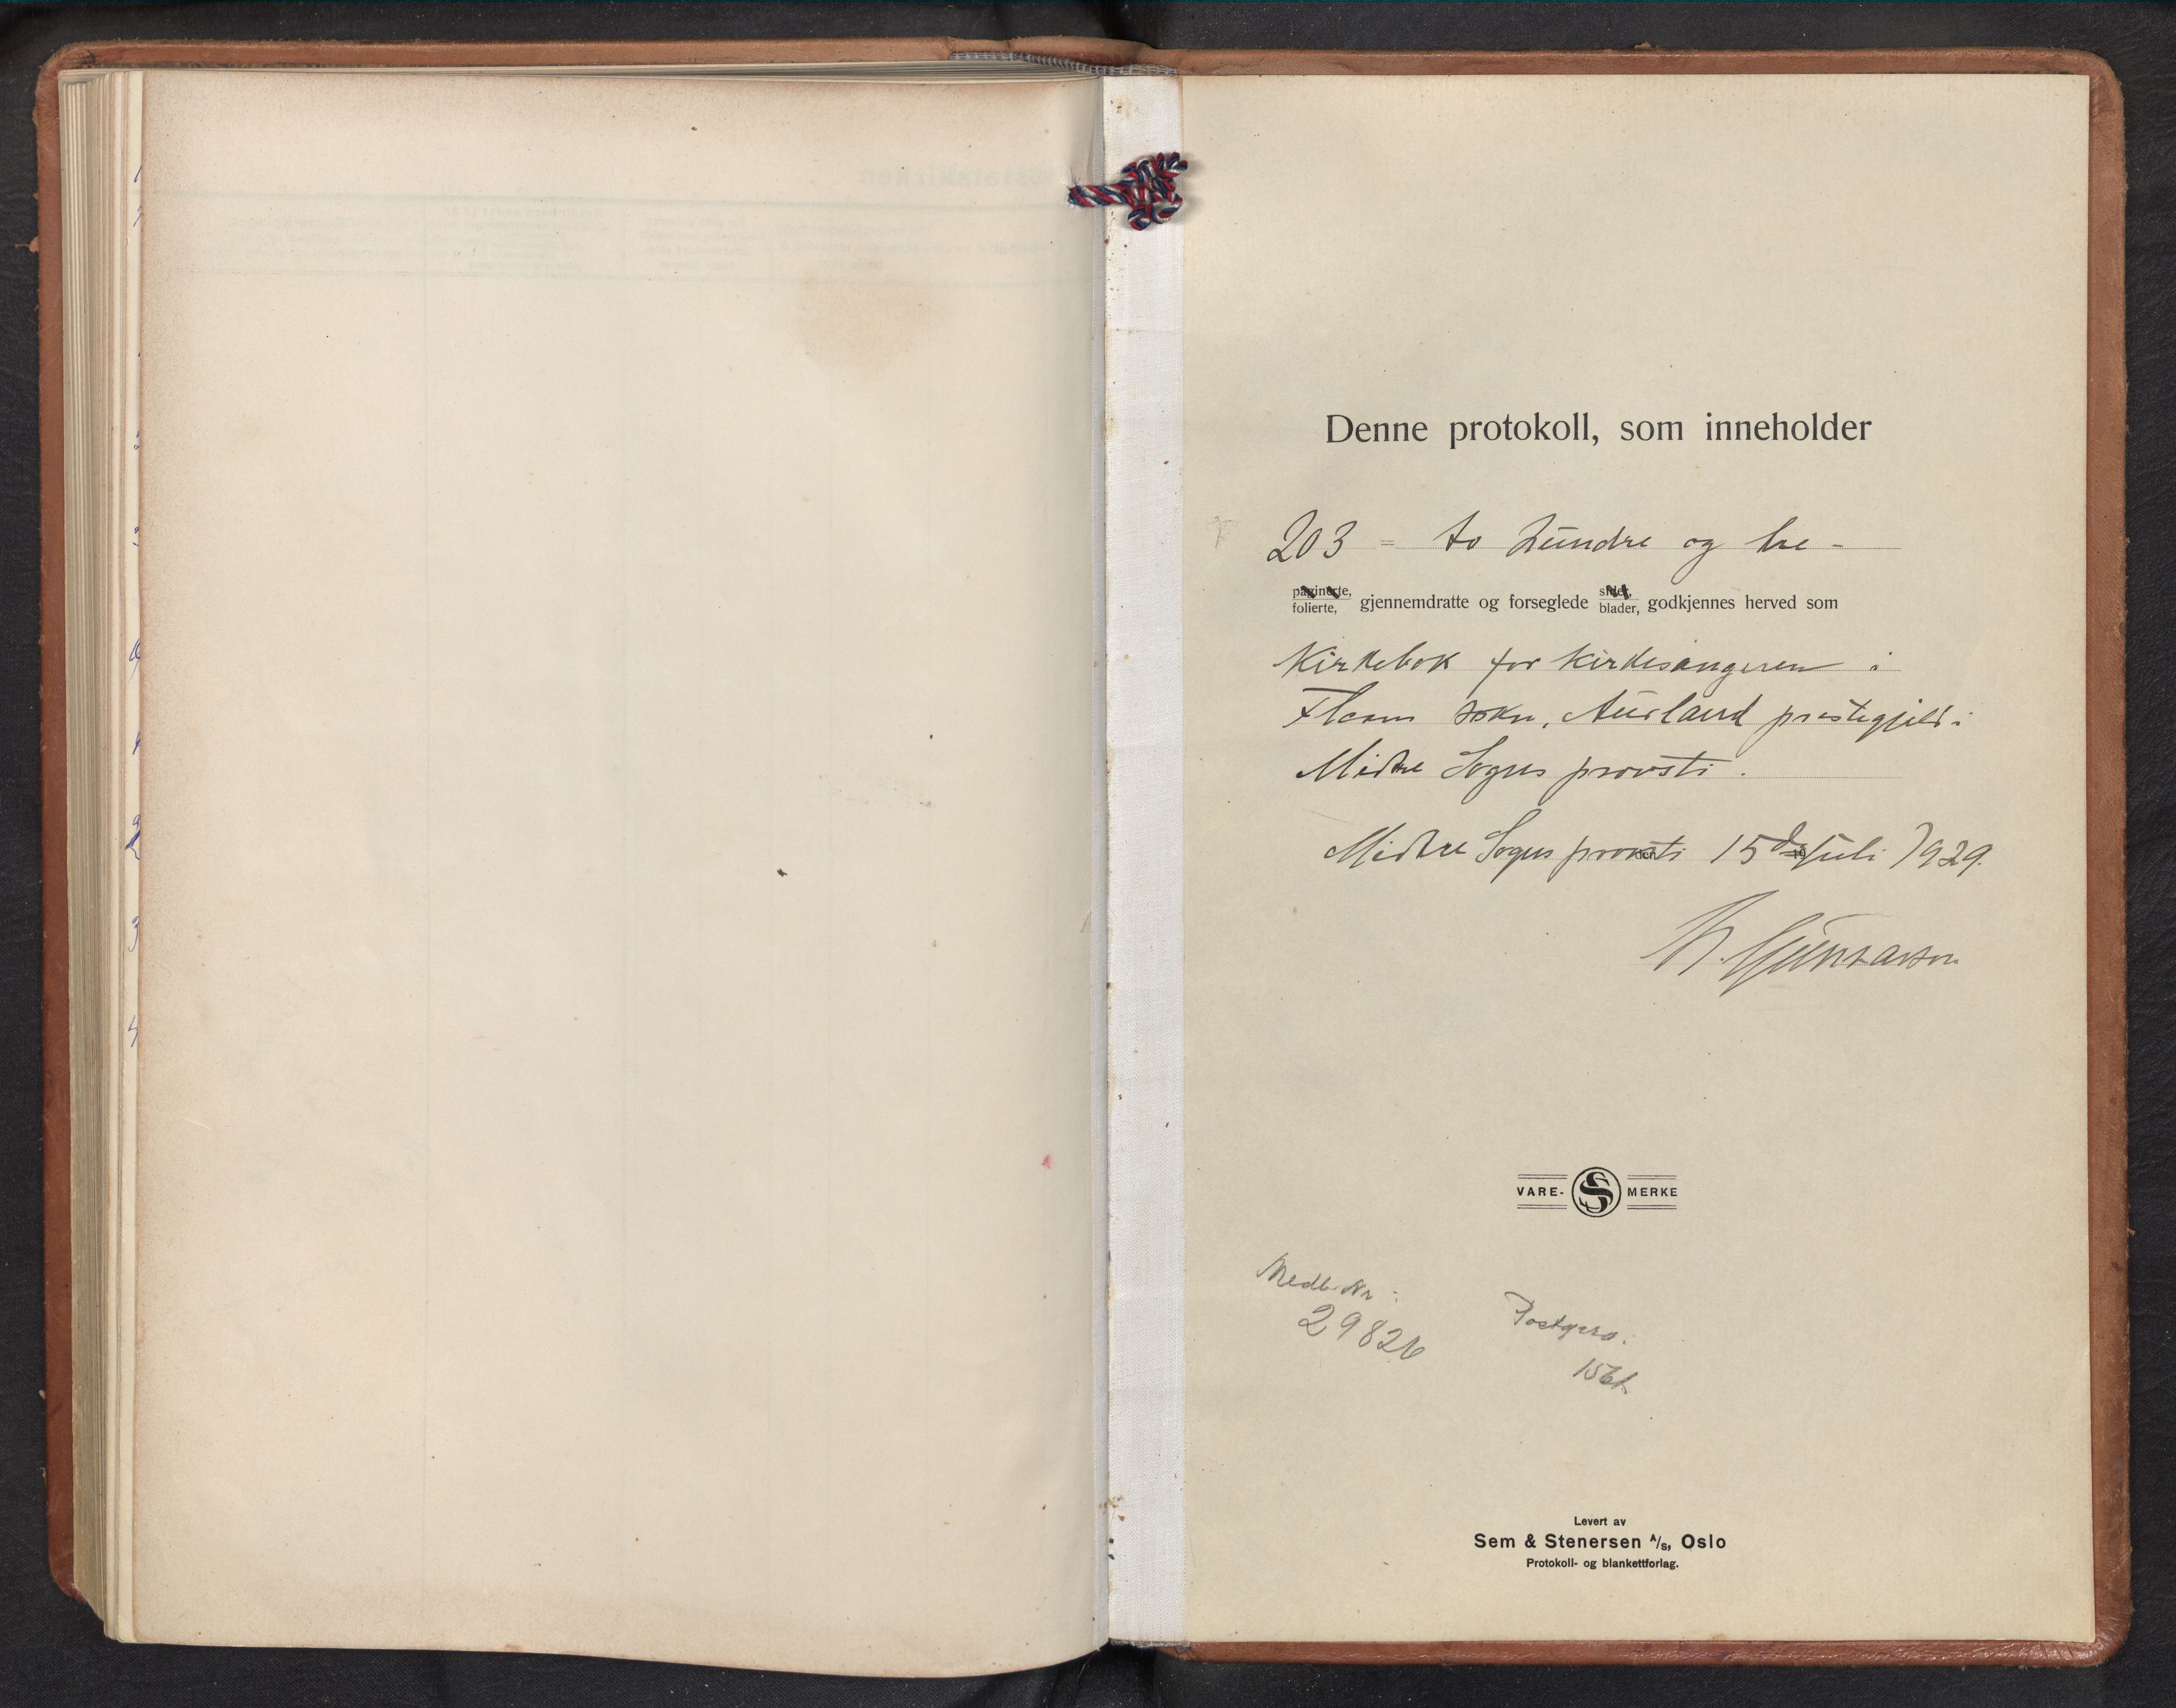 Denne protokoll, som inneholder
203 = to hundre og tre -
paginerte,
folierte, gjennemdratte og forseglede sider, blader, godkjennes herved som
Kirkebok for kirkesangeren i
Flaam sokn, Aurland prestegjeld i
Midtre Sogns prousti.
Midtre Sogns prousti 15de juli 1929.
VARE- S MERKE
Medl. Nr :
29826
Postgiro:
Levert av
Sem & Stenersen A/S, Oslo
Protokoll- og blankettforlag.